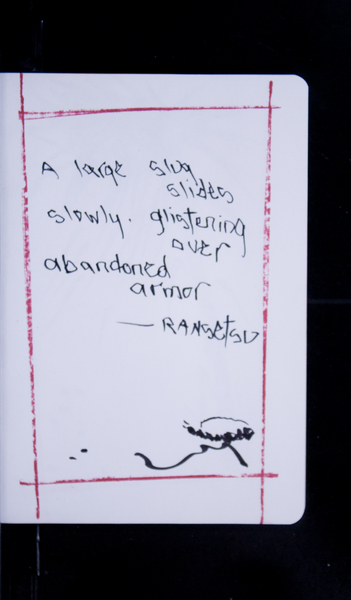 A large slug
slides
slowly. glistening
over
abandoned
armor
— RANSETSU